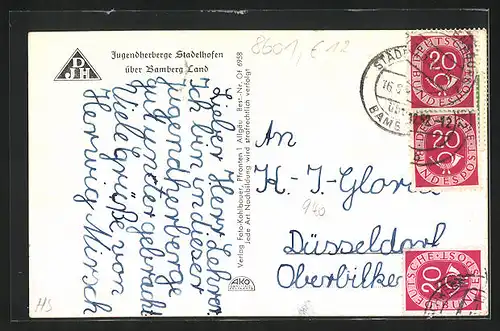 DJH
Jugendherberge Stadelhofen
über Bamberg Land
Lieber Herr Lehrer.
Ich bin in dieser
Jugendherberge
gut untergebracht
Viele Grüße von
Herwig Mirsch
Verlag Foto-Kohlbauer, Pfronten 1 Allgäu Best.-Nr. Of 6958
Jede Art Nachbildung wird strafrechtlich verfolgt
AKO
8601, € 12
An
H-J-Gloria
940
Düsseldorf
Oberbilker
HS
STADE
16.8
BAMB
20
DEUTSCHE BUNDESPOST
20
DEUTSCHE BUNDESPOST
20
DEUTSCHE BUNDESPOST